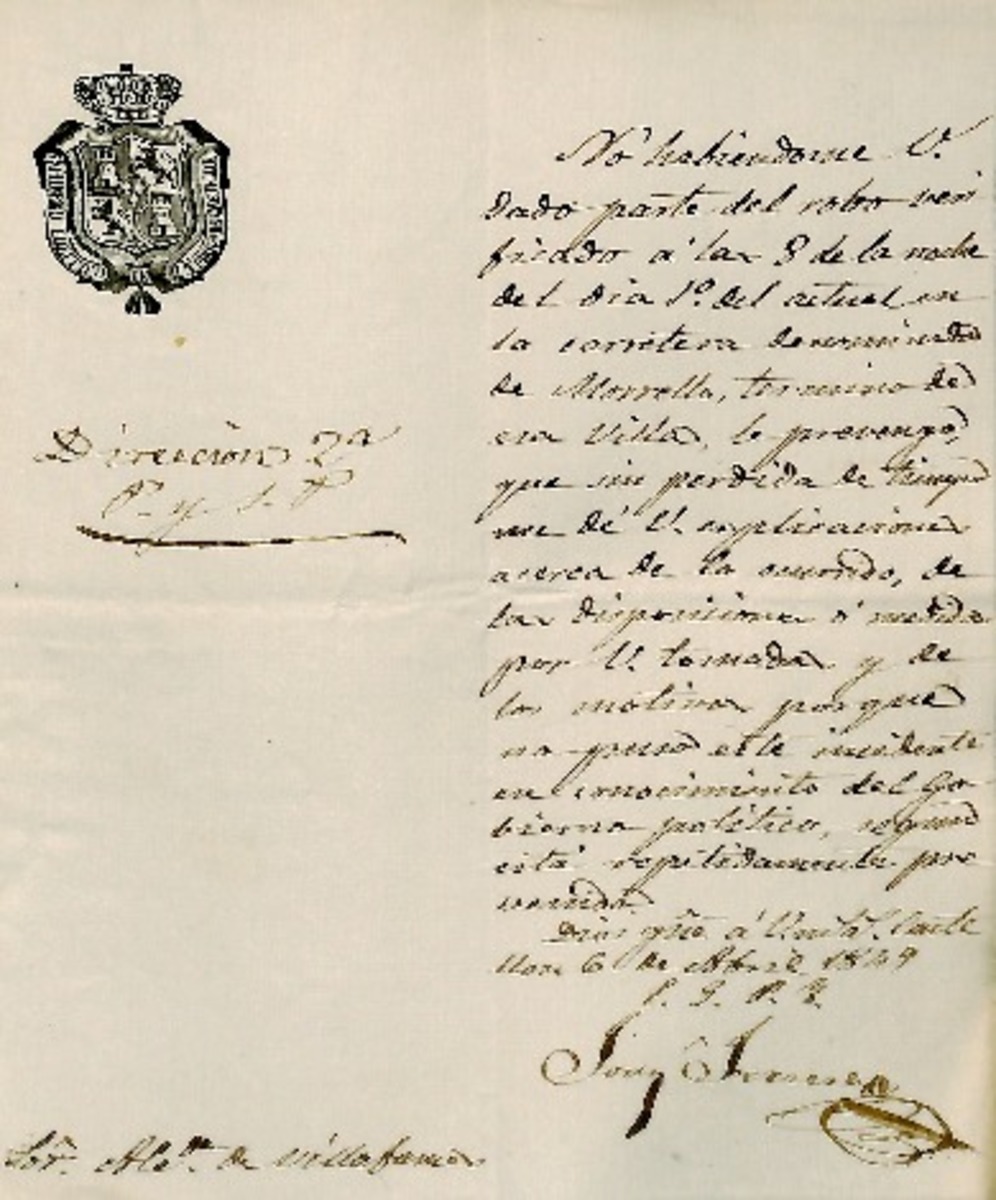 Direccion 2ª
P. y S. P
No habiendome V.
dado parte del robo veri
ficado á las 8 de la noche
del dia 1º. del actual en
la carretera denominada
de Morrella, termino de
esa Villa, le prevengo,
que sin perdida de tiempo
me dé V. esplicaciones
acerca de lo ocurrido, de
las disposiciones ó medidas
por V. tomadas y de
los motivos porque
no puso este incidente
en conocimiento del Go
bierno político, segun
está repetidamente pre
venido.
Dios gûe á V. mˢ. aˢ. Caste
llon 6 de Abril 1849
Sôr. Alcᵈᵉ. de Villafames